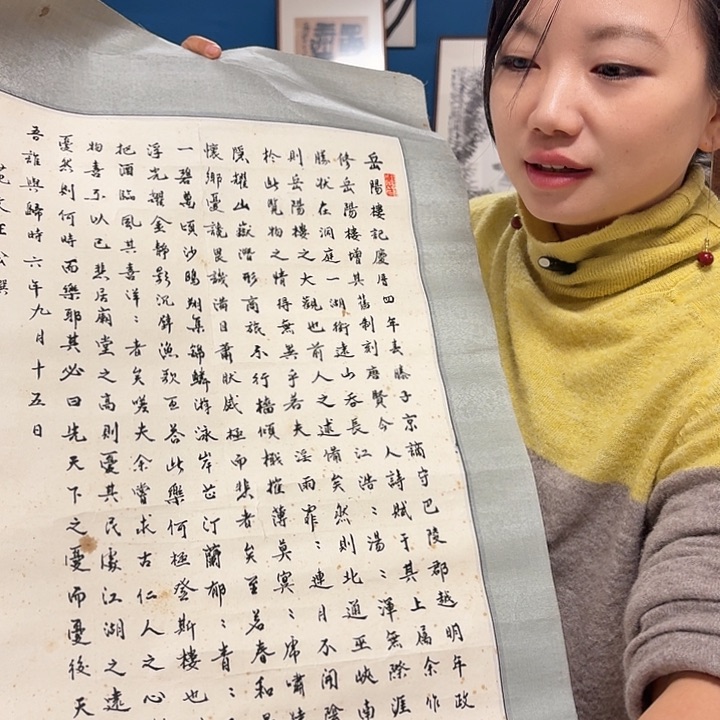 岳陽樓記慶曆四年春滕子京謫守巴陵郡越明年政
修岳陽樓增其舊制刻唐賢今人詩賦于其上屬余作
勝狀在洞庭一湖銜遠山吞長江浩:湯:渾無際涯
則岳陽樓之大觀也前人之述備矣然則北通巫峽南
於此覽物之情得無異乎若夫淫雨霏:連月不開陰
隱耀山嶽潛形商旅不行檣傾檝摧薄莫冥:虎嘯猿
懷鄉憂讒畏譏滿目蕭肰感極而悲者矣至若春和景
一碧萬頃沙鷗翔集錦鱗游泳岸芷汀蘭郁:青:
浮光耀金靜影沉璧漁歌互答此樂何極登斯樓也
把酒臨風其喜洋:者矣嗟夫余嘗求古仁人之心
物喜不以己悲居廟堂之高則憂其民處江湖之遠
憂然則何時而樂耶其必曰先天下之憂而憂後天
吾誰與歸時六年九月十五日
范文正公撰